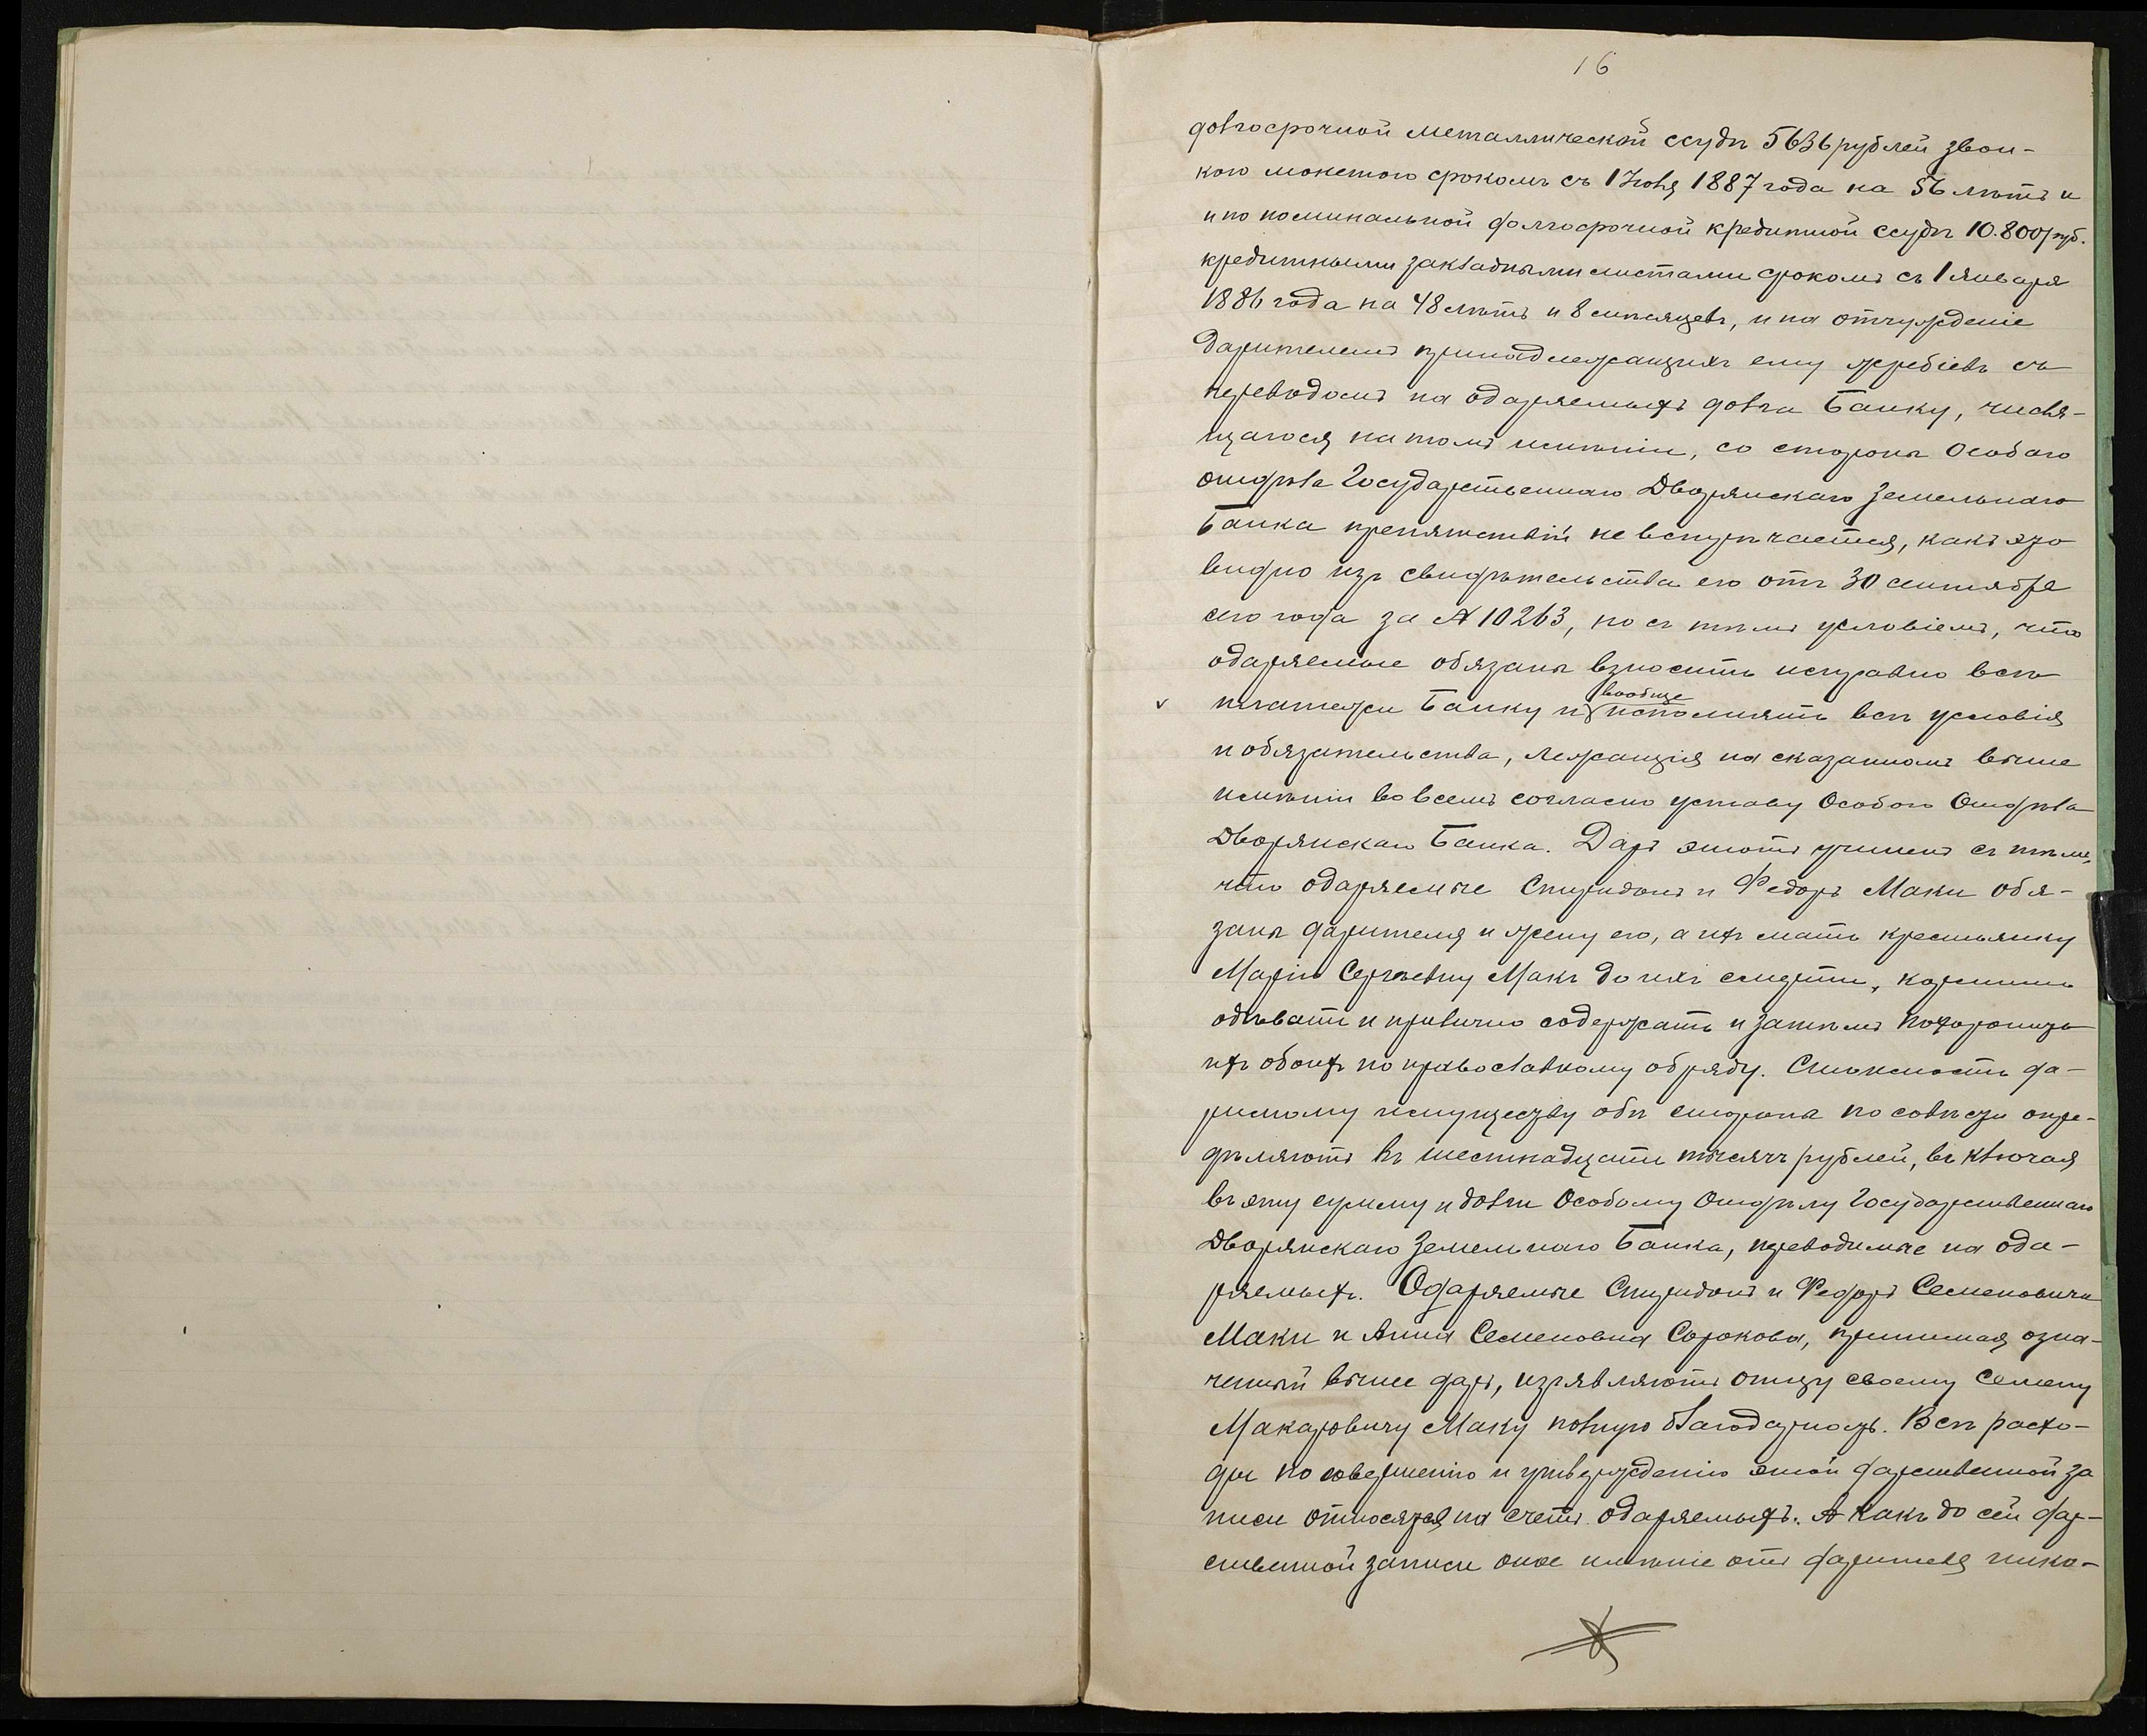 16
долгосрочной металлической ссудѣ 5636 рублей звон-
кою монетою срокомъ съ 1 Іюля 1887 года на 56 лѣтъ и
и по номинальной долгосрочной кредитной ссудѣ 10.800 руб.
кредитными закладными листами срокомъ съ 1 Января
1886 года на 48 лѣтъ и 8 мѣсяцевъ, и на отчужденіе
дарителемъ принадлежащихъ ему жребіевъ съ
переводомъ на одаряемыхъ долга Банку, числя-
щагося на томъ имѣніи, со стороны Особаго
отдѣла Государственнаго Дворянскаго Земельнаго
Банка препятствій не встрѣчается, какъ это
видно изъ свидѣтельства его отъ 30 сентября
сего года за № 10263, но съ тѣмъ условіемъ, что
одаряемые обязаны взносить исправно всѣ
v платежи Банку и вообще исполнять всѣ условія
и обязательства, лежащія на сказанномъ выше
имѣніи во всемъ согласно уставу Особого Отдѣла
Дворянскаго Банка. Даръ этотъ учиненъ съ тѣмъ,
что одаряемые Спиридонъ и Федоръ Маки обя-
заны дарителя и жену его, а ихъ мать крестьянку
Марію Сергѣевну Макъ до ихъ смерти, кормить
одѣвать и прилично содержать и затѣмъ похоронить
ихъ обоихъ по православному обряду. Стоимость да-
римому имуществу обѣ стороны по совѣсти опре-
дѣляютъ въ шестнадцать тысячъ рублей, включая
въ эту сумму и долги Особому Отдѣлу Государственнаго
Дворянскаго Земельнаго Банка, переводимые на ода-
ряемыхъ. Одаряемые Спиридонъ и Федоръ Семеновичи
Маки и Анна Семеновна Сорокова, принимая озна-
ченный выше даръ, изъявляютъ отцу своему Семену
Макаровичу Маку полную благодарность. Всѣ расхо-
ды по совершенію и утвержденію этой дарственной за
писи относятся на счетъ одаряемыхъ. А какъ до сей дар-
ственной записи оное имѣніе отъ дарителя нико-